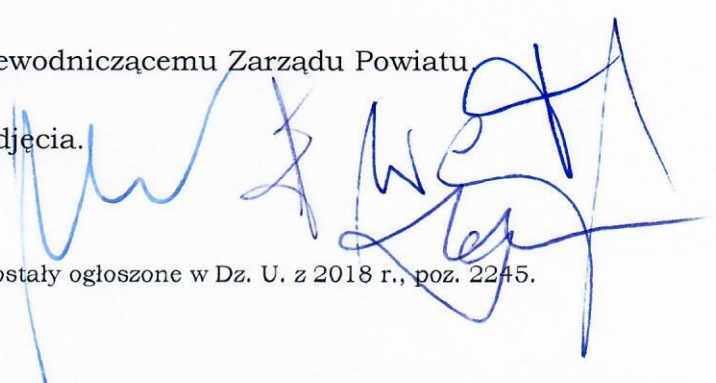 ewodniczącemu Zarządu Powiatu.
djęcia.
ostały ogłoszone w Dz. U. z 2018 r., poz. 2245.